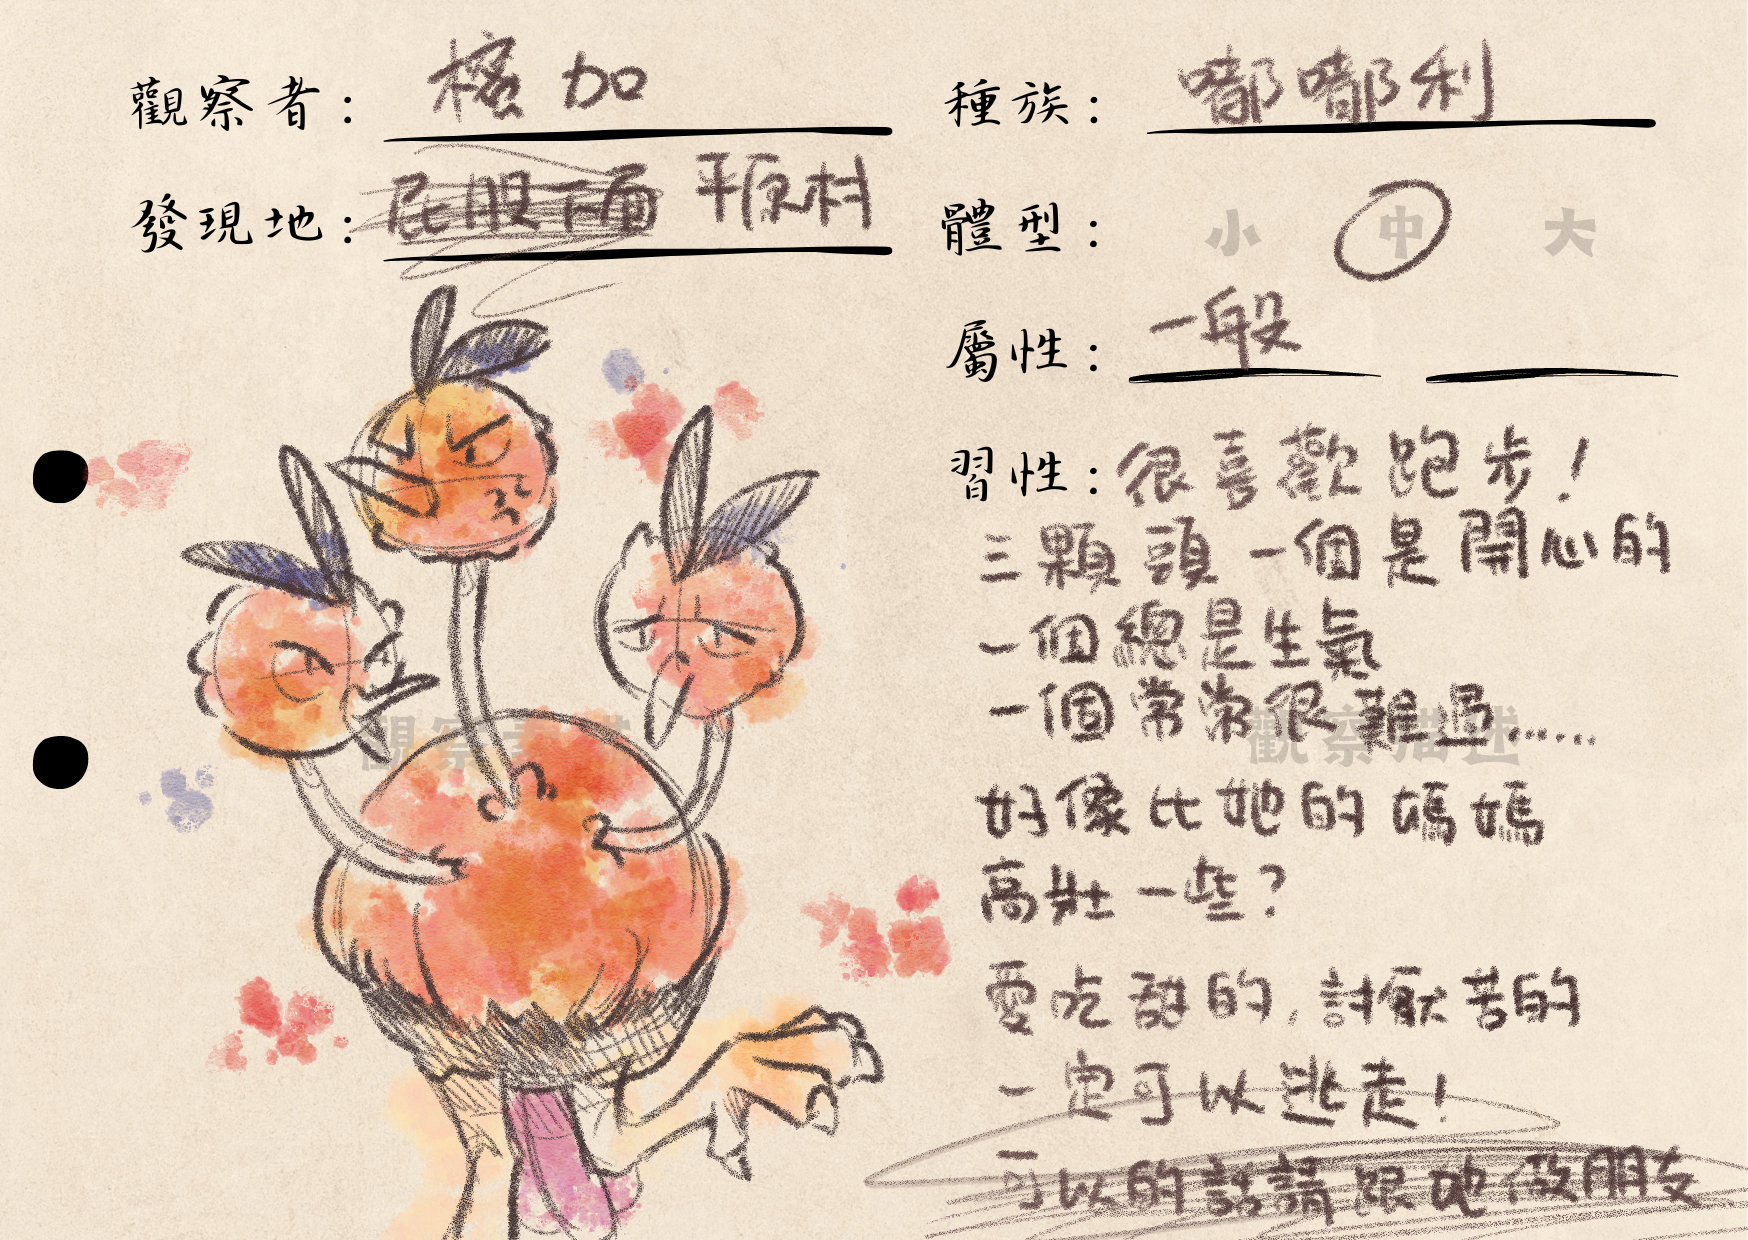 觀察者：榕加
種族：嘟嘟利
發現地：屁股下面 平原村
體型：小 中 大
屬性：一般
習性：很喜歡跑步！
三顆頭一個是開心的
一個總是生氣
一個常常很難過……
好像比她的媽媽
高壯一些？
愛吃甜的,討厭苦的
一定可以逃走！
可以的話請跟她做朋友
觀察
觀察描述